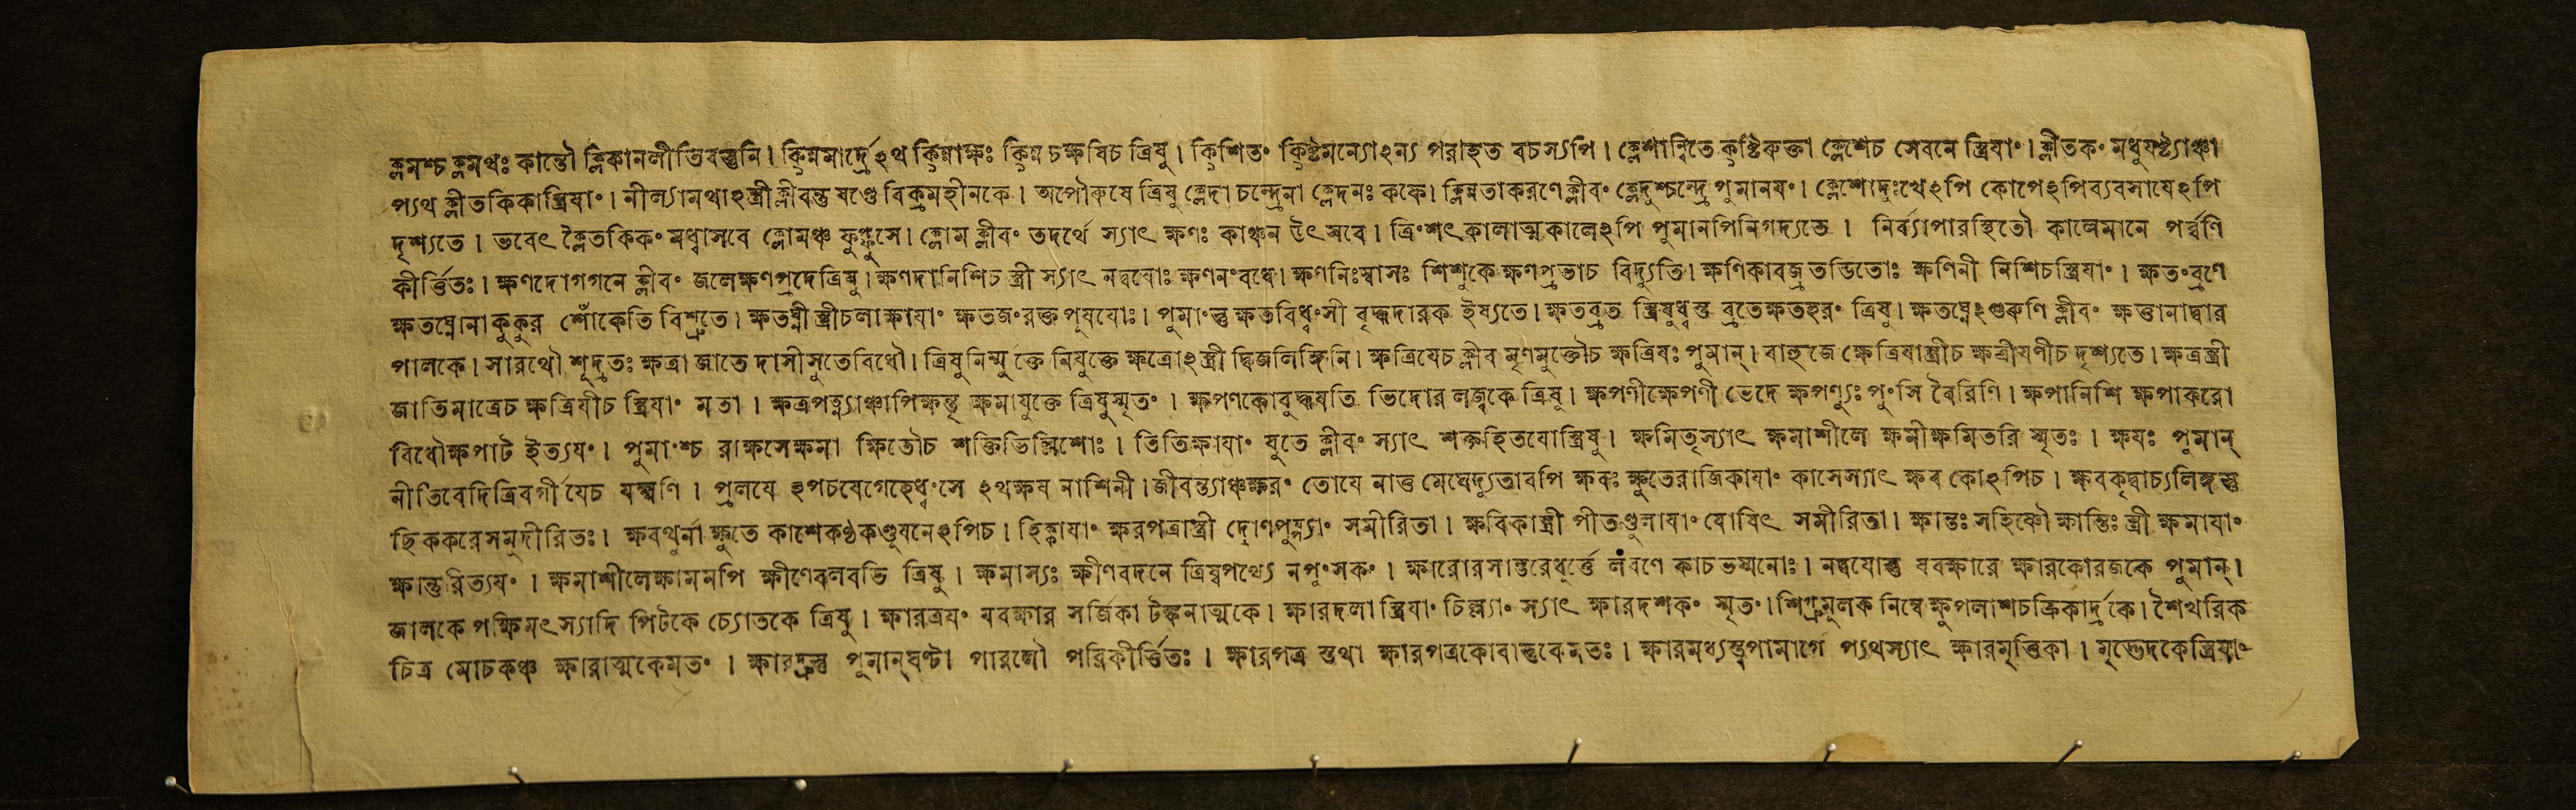 ক্লমশ্চ ক্লমথঃ কান্তৌ ক্লিকানলীতিবস্তুনি। ক্লিন্নমার্দ্রেঽথ ক্লিন্নাক্ষঃ ক্লিন্ন চক্ষষিচ ত্রিষু। ক্লিশিতং ক্লিষ্টমন্যোঽন্য পরাহত বচস্যপি। ক্লেশান্বিতে ক্লিষ্টিরুক্তা ক্লেশেচ সেবনে স্ত্রিযাং। ক্লীতকং মধুযষ্ট্যাঞ্চা
প্যথ ক্লীতকিকাস্ত্রিযাং। নীল্যামথাঽস্ত্রী ক্লীবন্তু ষণ্ডে বিক্রমহীনকে। অপৌরুষে ত্রিষু ক্লেদা চন্দ্রেনা ক্লেদনঃ কফে। ক্লিন্নতাকরণে ক্লীবং ক্লেদুশ্চন্দ্রে পুমানযং। ক্লেশোদুঃখেঽপি কোপেঽপিব্যবসাযেঽপি
দৃশ্যতে। ভবেৎ ক্লৈতকিকং মধ্বাসবে ক্লোমঞ্চ ফুপ্ফুসে। ক্লোম ক্লীবং তদর্থে স্যাৎ ক্ষণঃ কাঞ্চন উৎসবে। ত্রিংশৎকালাত্মকালেঽপি পুমানপিনিগদ্যতে। নির্ব্যাপারস্থিতৌ কালেমানে পর্ব্বণি
কীর্ত্তিতঃ। ক্ষণদোগগনে ক্লীবং জলেক্ষণপ্রদেত্রিষু। ক্ষণদানিশিচ স্ত্রী স্যাৎ নদ্বযোঃ ক্ষণনংবধে। ক্ষণনিঃস্বাসঃ শিশুকে ক্ষণপ্রভাচ বিদ্যুতি। ক্ষণিকাবজ্রতডিতোঃ ক্ষণিনী নিশিচস্ত্রিযাং। ক্ষতংব্রণে
ক্ষতঘ্নোনাকুকুর শোঁকেতি বিশ্রুতে। ক্ষতঘ্নী স্ত্রীচলাক্ষাযাং ক্ষতজংরক্তপূযযোঃ। পুমাংস্তু ক্ষতবিধ্বংসী বৃদ্ধদারক ইষ্যতে। ক্ষতব্রত স্ত্রিষুধ্বস্ত ব্রতেক্ষতহরং ত্রিষু। ক্ষতঘ্নেঽগুরুণি ক্লীবং ক্ষত্তানাদ্বার
পালকে। সারথৌ শূদ্রতঃ ক্ষত্রা জাতে দাসীসুতেবিধৌ। ত্রিষুনিন্মুক্তে নিযুক্তে ক্ষত্রোঽস্ত্রী দ্বিজলিঙ্গিনি। ক্ষত্রিযেচ ক্লীব মৃণমুক্তৌচ ক্ষত্রিযঃ পুমান্। বাহুজে ক্ষেত্রিযাস্ত্রীচ ক্ষত্রীযণীচ দৃশ্যতে। ক্ষত্রস্ত্রী
জাতিমাত্রেচ ক্ষত্রিযীচ স্ত্রিযাং মতা। ক্ষত্রপত্ন্যাঞ্চাপিক্ষন্তৃ ক্ষমাযুক্তে ত্রিষুস্মৃতং। ক্ষপণকোবুদ্ধযতি ভিদোর লজ্বকে ত্রিষু। ক্ষপণীক্ষেপণী ভেদে ক্ষপণ্যুঃ পুংসি বৈরিণি। ক্ষপানিশি ক্ষপাকরো
বিধৌক্ষপাট ইত্যযং। পুমাংশ্চ রাক্ষসেক্ষমা ক্ষিতৌচ শক্তিভিন্নিশোঃ। তিতিক্ষাযাং যুতে ক্লীবং স্যাৎ শক্তহিতযোস্ত্রিষু। ক্ষমিতৃস্যাৎ ক্ষমাশীলে ক্ষমীক্ষমিতরি স্মৃতঃ। ক্ষযঃ পুমান্
নীতিবেদিত্রিবর্গীযেচ যক্ষ্মণি। প্রলযে ঽপচযেগেহেধ্বংসে ঽথক্ষয নাশিনী। জীবন্ত্যাঞ্চক্ষরং তোযে নাত্ত মেঘেদ্যুতাবপি ক্ষবঃ ক্ষুতেরাজিকাযাং কাসেস্যাৎ ক্ষব কোঽপিচ। ক্ষবকৃদ্বাচ্যলিঙ্গস্তু
ছিককরেসমুদীরিতঃ। ক্ষবথুর্না ক্ষুতে কাশেকণ্ঠকণ্ডুযনেঽপিচ। হিক্কাযাং ক্ষরপত্রাস্ত্রী দ্রোণপুষ্প্যাং সমীরিতা। ক্ষবিকাস্ত্রী পীতণ্ডুলাযাং যোষিৎ সমীরিতা। ক্ষান্তঃ সহিষ্ণৌ ক্ষান্তিঃ স্ত্রী ক্ষমাযাং
ক্ষান্তুরিত্যযং। ক্ষমাশীলেক্ষামমপি ক্ষীণেবলবতি ত্রিষু। ক্ষমাস্যঃ ক্ষীণবদনে ত্রিষ্বপথ্যে নপুংসকং। ক্ষারোরসান্তরেধূর্ত্তে লবণে কাচভস্মনোঃ। নদ্বযোস্তু যবক্ষারে ক্ষারকোরজকে পুমান্।
জালকে পক্ষিমৎস্যাদি পিটকে চ্যোতকে ত্রিষু। ক্ষারত্রযং যবক্ষার সর্জিকা টঙ্কনাত্মকে। ক্ষারদলা স্ত্রিযাং চিল্ল্যাং স্যাৎ ক্ষারদশকং স্মৃতং। শিগ্রুমূলক নিম্বেক্ষুপলাশচক্রিকার্দ্রকে। শৈথরিক
চিত্র মোচকঞ্চ ক্ষারাত্মকেমতং। ক্ষারদ্রুস্তু পুমান্‌ঘণ্টা পারলৌ পরিকীর্ত্তিতঃ। ক্ষারপত্র স্তথা ক্ষারপত্রকোবাস্তুকেমতঃ। ক্ষারমধ্যস্ত্বপামার্গে প্যথস্যাৎ ক্ষারমৃত্তিকা। মৃদ্ভেদকেস্ত্রিযাং